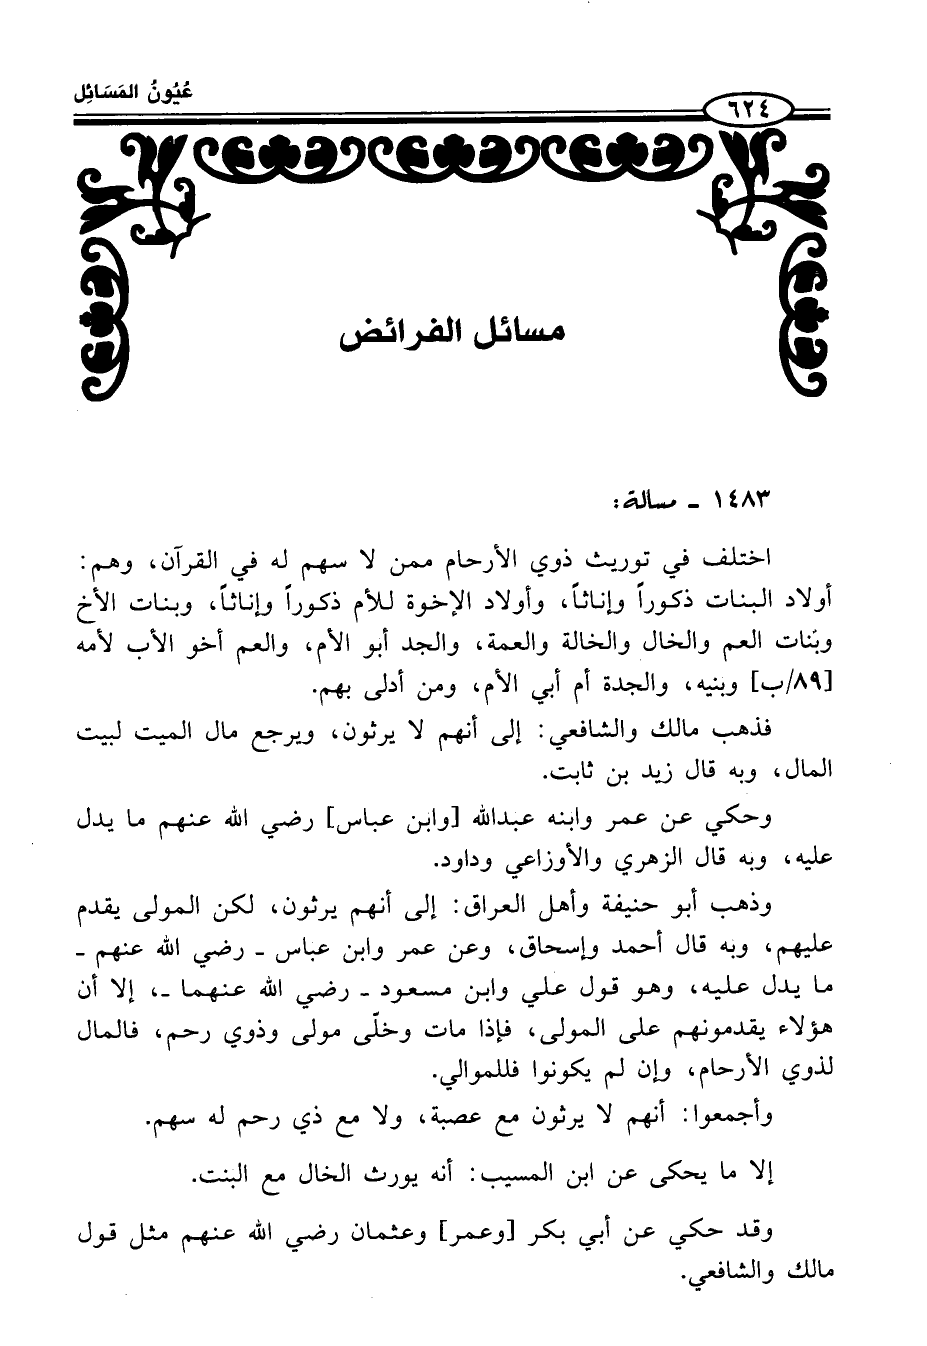 عُيُونُ المَسَائِل
٦٢٤
مسائل الفرائض
١٤٨٣ ـ مسالة:
اختلف في توريث ذوي الأرحام ممن لا سهم له في القرآن، وهم:
أولاد البنات ذكوراً وإناثاً، وأولاد الإخوة للأم ذكوراً وإناثاً، وبنات الأخ
وبنات العم والخال والخالة والعمة، والجد أبو الأم، والعم أخو الأب لأمه
[٨٩/ب] وبنيه، والجدة أم أبي الأم، ومن أدلى بهم.
فذهب مالك والشافعي: إلى أنهم لا يرثون، ويرجع مال الميت لبيت
المال، وبه قال زيد بن ثابت.
وحكي عن عمر وابنه عبدالله [وابن عباس] رضي الله عنهم ما يدل
عليه، وبه قال الزهري والأوزاعي وداود.
وذهب أبو حنيفة وأهل العراق: إلى أنهم يرثون، لكن المولى يقدم
عليهم، وبه قال أحمد وإسحاق، وعن عمر وابن عباس ـ رضي الله عنهم ـ
ما يدل عليه، وهو قول علي وابن مسعود ـ رضي الله عنهما ـ، إلا أن
هؤلاء يقدمونهم على المولى، فإذا مات وخلّى مولى وذوي رحم، فالمال
لذوي الأرحام، وإن لم يكونوا فللموالي.
وأجمعوا: أنهم لا يرثون مع عصبة، ولا مع ذي رحم له سهم.
إلا ما يحكى عن ابن المسيب: أنه يورث الخال مع البنت.
وقد حكي عن أبي بكر [وعمر] وعثمان رضي الله عنهم مثل قول
مالك والشافعي.